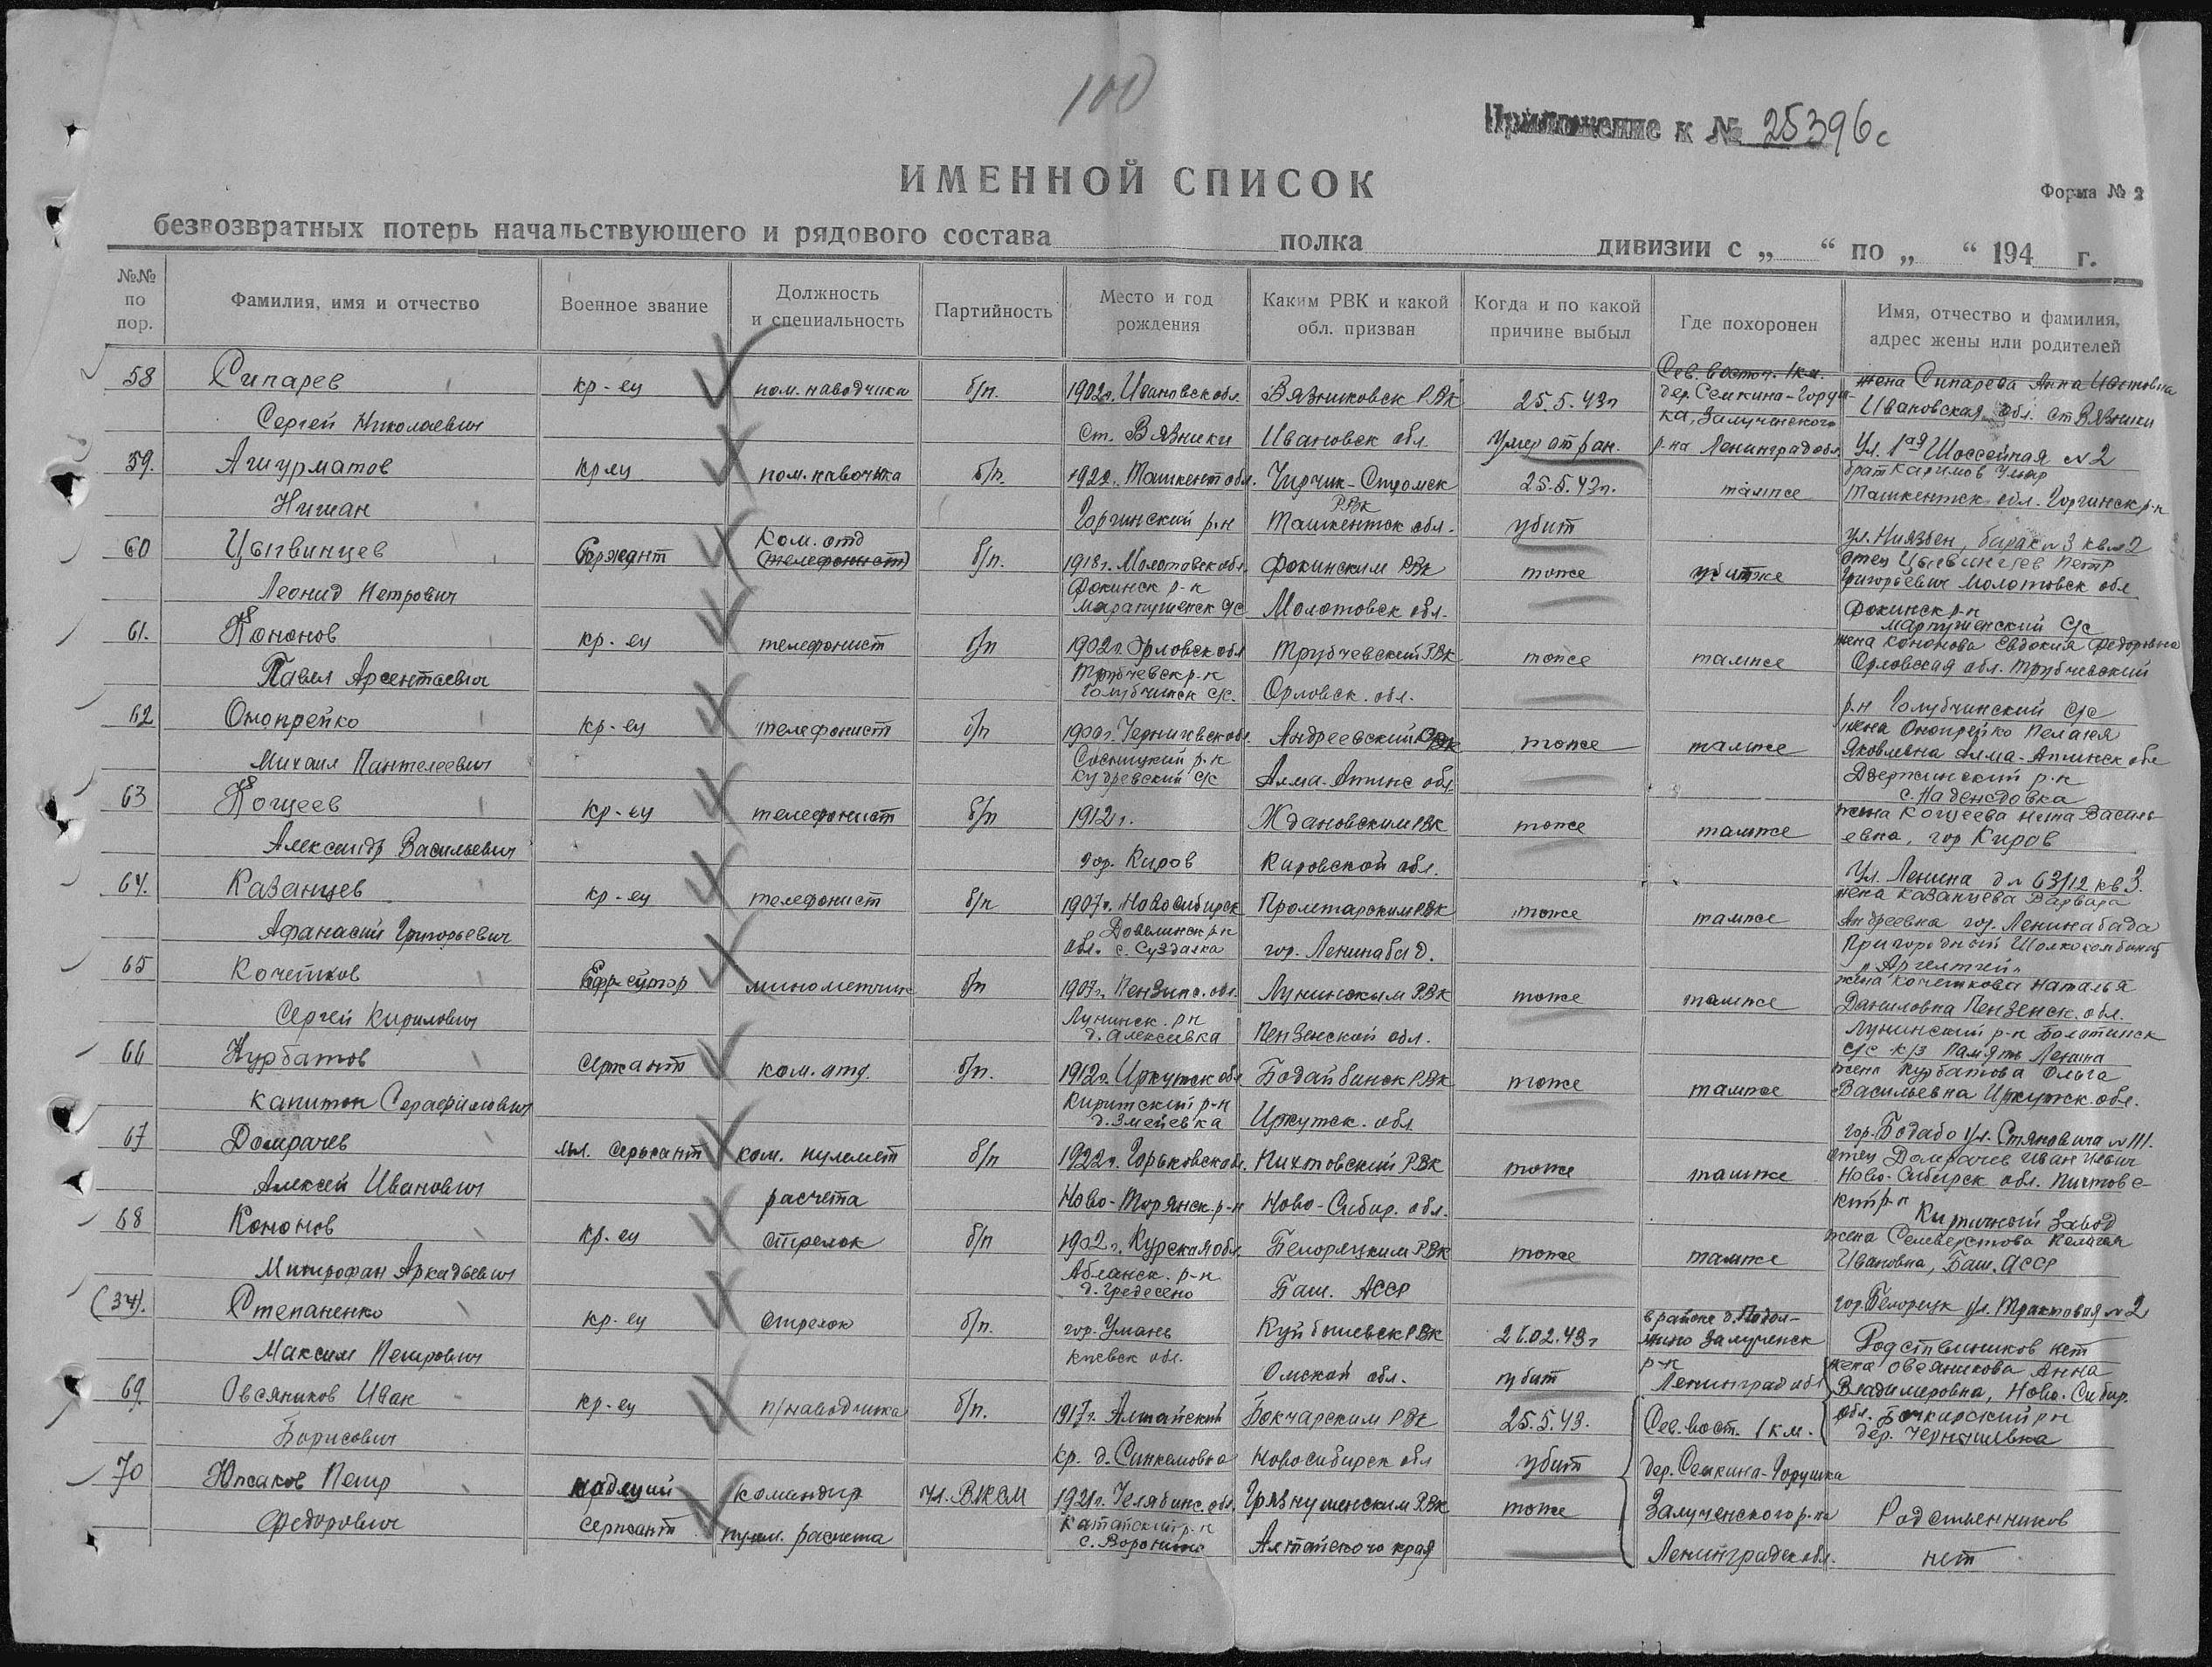 100
Приложение к № 25396с
ИМЕННОЙ СПИСОК
Форма № 2
безвозвратных потерь начальствующего и рядового состава полка дивизии с „ “ по „ “ 194 г.
№№ по пор.
Фамилия, имя и отчество
Военное звание
Должность и специальность
Партийность
Место и год рождения
Каким РВК и какой обл. призван
Когда и по какой причине выбыл
Где похоронен
Имя, отчество и фамилия, адрес жены или родителей
58 Сипарев кр-ец пом. наводчика б/п. 1902г. Ивановск обл. Вязниковск РВК 25.5.43г Сев. восточ. 1 км. дер. Семкина-Горуш- жена Сипарева Анна
Сергей Николаевич ст. Вязники Ивановск обл. Умер от ран. ка, Залучского р-на Ленинград обл. Ивановская обл. ст Вязники
Ул. 1ая Шоссейная № 2
59. Ашурматов кр ец пом. наводчика б/п. 1922г. Ташкент обл. Чирчик- РВК 25.5.43г. тамже брат Каримов Умар
Нишан р-н Ташкентск обл. убит Ташкентск. обл. р-н
барак № 3 кв № 2
60 Цывинцев Сержант Ком. отд (телефонист) б/п. 1918г. Молотовск обл. Фокинским РВК тоже отец Цывинцев Петр
Леонид Петрович Фокинск р-н с/с Молотовск обл. Григорьевич Молотовск обл.
Фокинск р-н
с/с
61. Кононов кр-ец телефонист б/п 1902г. Орловск обл Трубчевский РВК тоже тамже жена Кононова Евдокия Федоровна
Павел Арсентьевич Трубчевск р-н Голубчинск с/с. Орловск. обл. Орловская обл. Трубчевский
р-н Голубчинский с/с
62 Онопрейко кр-ец телефонист б/п 1900г. Черниговск обл. Андреевский РВК тоже тамже жена Онопрейко Пелагея
Михаил Пантелеевич Сосницкий р-н Кудревский с/с Алма-Атинс обл. Яковлевна Алма-Атинск обл
Дзержинский р-н
с. Надеждовка
63 Кощеев кр-ец телефонист б/п 1912г. Ждановским РВК тоже тамже жена Кощеева Василь-
Александр Васильевич гор. Киров Кировской обл. евна, гор Киров
Ул. Ленина д № 63/12 кв 3.
64. Казанцев кр-ец телефонист б/п 1907г. Новосибирск Пролетарским РВК тоже тамже жена Казанцева Варвара
Афанасий Григорьевич р-н обл. с. Суздалка гор. Ленинабад. Андреевна гор. Ленинабада
Пригородный Шолкокомбинат
65 Кочетков Ефрейтор минометчик б/п 1907г. Пензинс. обл. Лунинским РВК тоже тамже жена Кочеткова Наталья
Сергей Кирилович Лунинск. рн д. Алексеевка Пензенской обл. Даниловна Пензенск. обл.
Лунинский р-н Болотинск
с/с к/з Память Ленина
66 Курбатов Сержант ком. отд. б/п. 1912г. Иркутск обл Бодайбинск РВК тоже тамже жена Курбатова Ольга
Капитон Серафимович р-н д. Змеевка Иркутск. обл. Васильевна Иркутск. обл.
гор. Бодабо ул. Стяновича № 111.
67 Домрачев мл. Сержант ком. пулемет б/п 1922г. Горьковск обл. Пихтовский РВК тоже тамже отец Домрачев Иван
Алексей Иванович расчета Ново-Торянск. р-н Ново-Сибир. обл. Ново-Сибирск обл. Пихтовс-
кий р-н Кирпичной Завод
68 Кононов кр-ец стрелок б/п 1902г. Курская обл. Белорецким РВК тоже тамже жена Селеверстова Пелагея
Митрофан Аркадьевич р-н Баш. АССР Ивановна, Баш. АССР
гор. Белорецк ул. Трактовая № 2
(34). Степаненко кр-ец стрелок б/п. гор. Умань Куйбышевск РВК 21.02.43г в районе д. Залученск
Максим Петрович Киевск обл. Омской обл. убит р-н Ленинград обл Родственников нет
69. Овсяников Иван кр-ец п/наводчика б/п. 1917г. Алтайский Бокчарским РВК 25.5.43. Сев. вост. 1 км. жена Овсяникова Анна
Борисович кр. д. Новосибирск обл убит дер. Семкина-Горушка Владимировна, Ново-Сибир.
обл. р-н
дер. Чернышевка
70 Южаков Петр младший командир чл. ВЛКСМ 1921г. Челябинс. обл. РВК тоже Залученского р-на Родственников
Федорович Сержант пулм. расчета р-н с. Воронино Алтайского края Ленинградск обл. нет